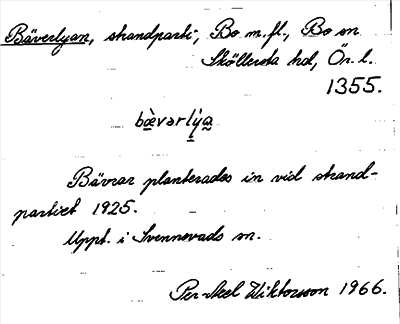 Bäverlyan, strandparti, Bo m.fl., Bo sn
Sköllersta hd, Ör. l.
1355.
bæ̀varlẏ́a
Bävrar planterades in vid strand-
partiet 1925.
Uppt. i Svennevads sn.
Per-Axel Wiktorsson 1966.